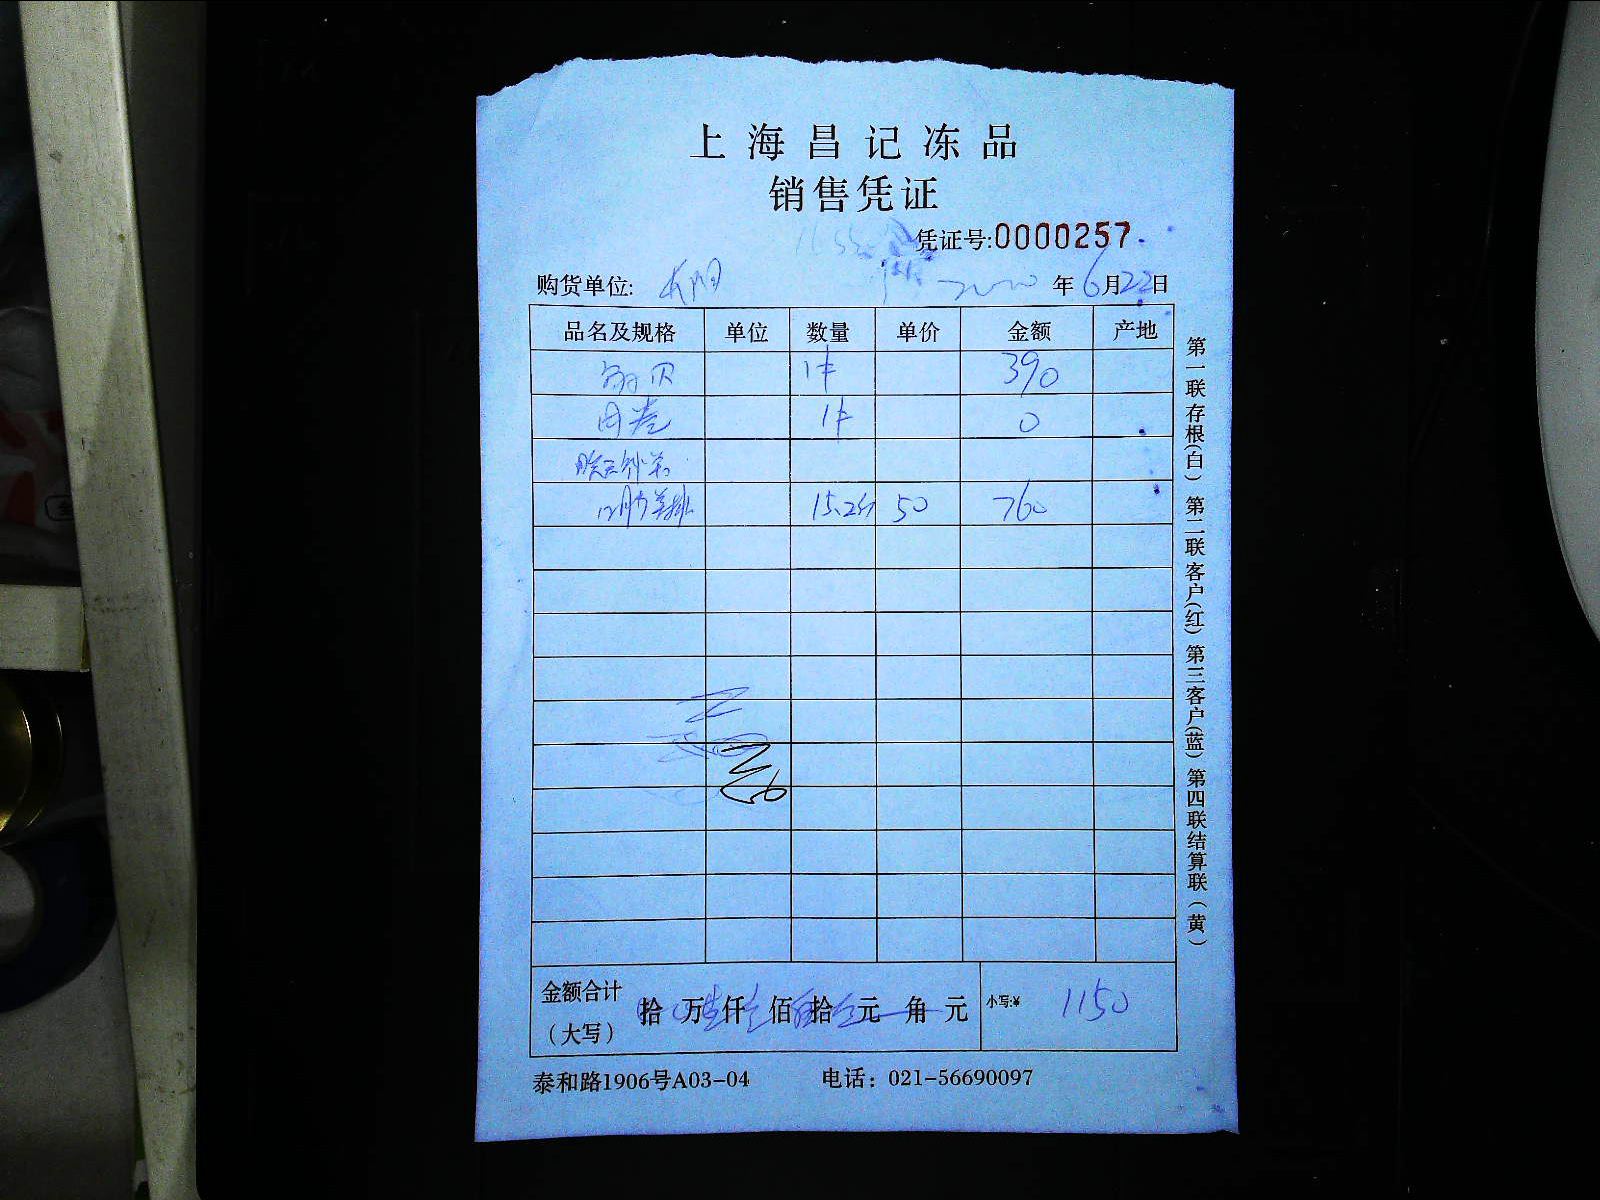 上海昌记冻品
销售凭证
凭证号:0000257
购货单位: 2020年6月22日
品名及规格 单位 数量 单价 金额 产地
贝 1件 390
1件 0
羊排 15.2斤 50 760
金额合计（大写） 拾 万 仟 佰 拾 元 角 元 小写:¥ 1150
泰和路1906号A03-04 电话：021-56690097
第一联存根(白) 第二联客户(红) 第三客户(蓝) 第四联结算联(黄)